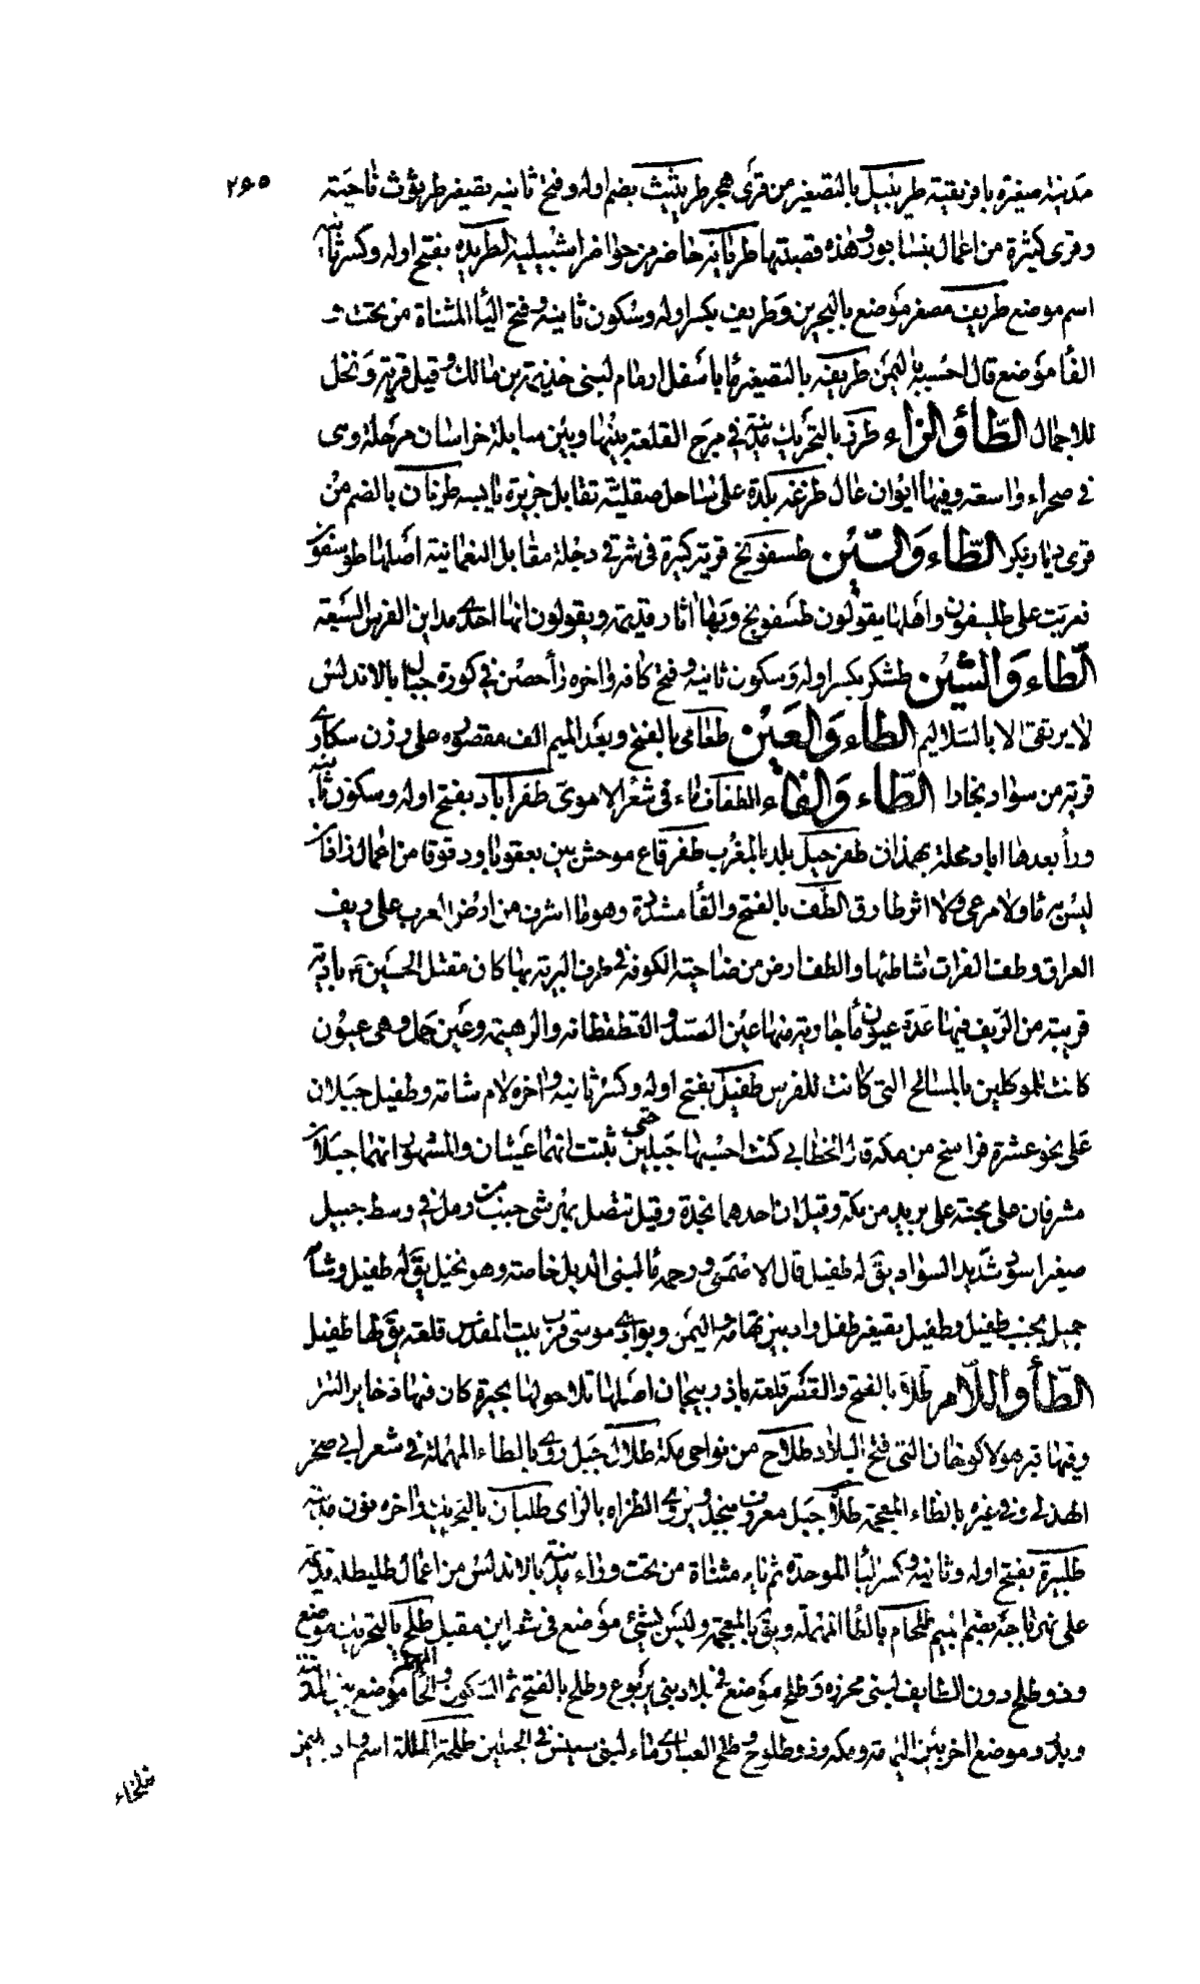 مدينة صغيرة بافريقية طريبيل بالتصغير من قرى هجر طريثيث بضم اوله وفتح ثانيه تصغير طريوث ناحية ٢٦٥
وقرى كثيرة من اعمال نيسابور وهذه قصبتها طريانة حاضرة من حواضر اشبيلية الطريدة بفتح اوله وكسر ثانيه
اسم موضع طريف مصغر موضع بالبحرين وطريف بكسر اوله وسكون ثانيه وفتح اليأ المثناة من تحت
الفأ موضع قال احسبه باليمن طريفة بالتصغير مأ باسفل ارمام لبنى خذيمة بن مالك وقيل قرية ونخل
للاجمال الطأ والزاء طزر بالتحريك مدينة في مرج القلعة بينها وبين سابلة خراسان مرحلة وهى
في صحراء واسعة وفيها ايوان عال طزغة بلدة على ساحل صقلية تقابل جزيرة يابسه طزيان بالضم من
قرى ديار بكر الطاء والسين طسفونج قرية كبيرة في شرقي دجلة مقابل النعمانية اصلها طوسفون
فعربت على طيسفون واهلها يقولون طسفونج وبها اثار قديمة ويقولون انها احدى مداين الفرس السبعة
الطاء والشين طشكر بكسر اوله وسكون ثانيه وفتح كافه واخره رأ حصن في كورة جيان بالاندلس
لا يرتقى الا بالسلاليم الطاء والعين طغامى بالفتح وبعد الميم الف مقصوره على وزن سكارى
قرية من سواد بخارا الطاء والفاء الطفاف ماء في شعر الاموى طفراباد بفتح اوله وسكون ثانيه
ورأ بعدها اباد محلة بهمذان طفرجيل بلد بالمغرب طفر قاع موحش بين بعقوبا ودقوقا من اعمال راذان
ليس به ماء ولا مرعى ولا اثر طارق الطف بالفتح والفأ مشددة وهو ما اشرف من ارض العرب على ريف
العراق وطف الفرات شاطئها والطف ارض من ضاحية الكوفة في طرف البرية بها كان مقتل الحسين بادية
قريبة من الريف فيها عدة عيون مأ جارية منها عين الصيد والقطقطانه والرهيمة وعين جمل وهى عيون
كانت للموكلين بالمسالح التى كانت للفرس طفيل بفتح اوله وكسر ثانيه واخره لام شامة وطفيل جبلان
على نحو عشرة فراسخ من مكة قال الخطابي كنت احسبهما جبلين حتى ثبتت انهما عينان والمشهور انهما جبلان
مشرفان على مجنة على بريد من مكة وقيل ان احدهما بجدة وقيل تتصل بهرشى خبت من رمل في وسط جبيل
صغير اسود شديد السواد يق له طفيل قال الاصمعى ورحمة مأ لبنى الديل خاصة وهو نخيل يق له طفيل وشامة
جبيل بجنب طفيل وطفيل تصغير طفل واد بين تهامة واليمن وبوادى موسى قرب بيت المقدس قلعة يق لها طفيل
الطأ واللام طلا بالفتح والقصر قلعة باذربيجان اصلها تلا حولها بحيرة كان فيها ذخاير التتر
وفيها قبر هولاكوخان التى فتح البلاد طلاح من نواحى مكة طلال جبل روى بالطاء المهملة في شعر ابي صخر
الهذلى وفي غيره بالظاء المعجمة طلا جبل معروف بنجد ويروى الظراه بالزاى طلبان بالتحريك واخره نون مدينة
طلبيرة بفتح اوله وثانيه وكسر البأ الموحدة ثم ياء مثناة من تحت وراء مدينة بالاندلس من اعمال طليطلة قديمة
على نهر تاجة بضم الجيم طلحام بالطأ المهملة ويق بالمعجمة وليس بشئ موضع في شعر ابن مقبل طلح بالتحريك موضع
وذو طلح دون الطايف لبنى محرزه وطلح موضع في بلاد بني يربوع وطلح بالفتح ثم السكون والحأ المهملة موضع بين المدينة
وبدر وموضع اخر بين اليمامة ومكه وذو طلوح وطلح العبادى ماء لبنى سنبس في الجبلين طلحة الملك اسم واد باليمن
طلخاء